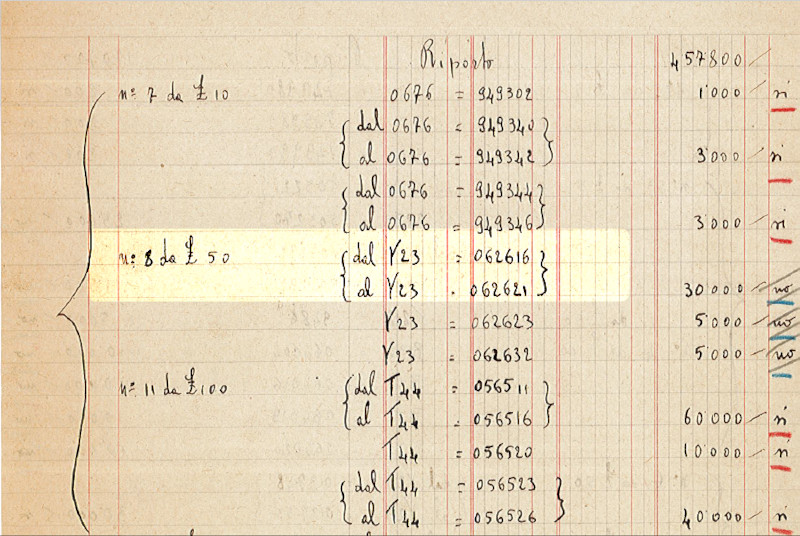 Riporto 457800/
nº 7 da £ 10 0676 = 949302 1'000 / si
dal 0676 = 949340
al 0676 = 949342 3'000 / si
dal 0676 = 949344
al 0676 = 949346 3'000 / si
nº 8 da £ 50 dal V23 = 062616
al V23 . 062621 30'000 / no
V23 = 062623 5'000 / no
V23 = 062632 5'000 / no
nº 11 da £ 100 dal T44 = 056511
al T44 = 056516 60'000 / si
T44 = 056520 10'000 / si
dal T44 = 056523
al T44 = 056526 40'000 / si